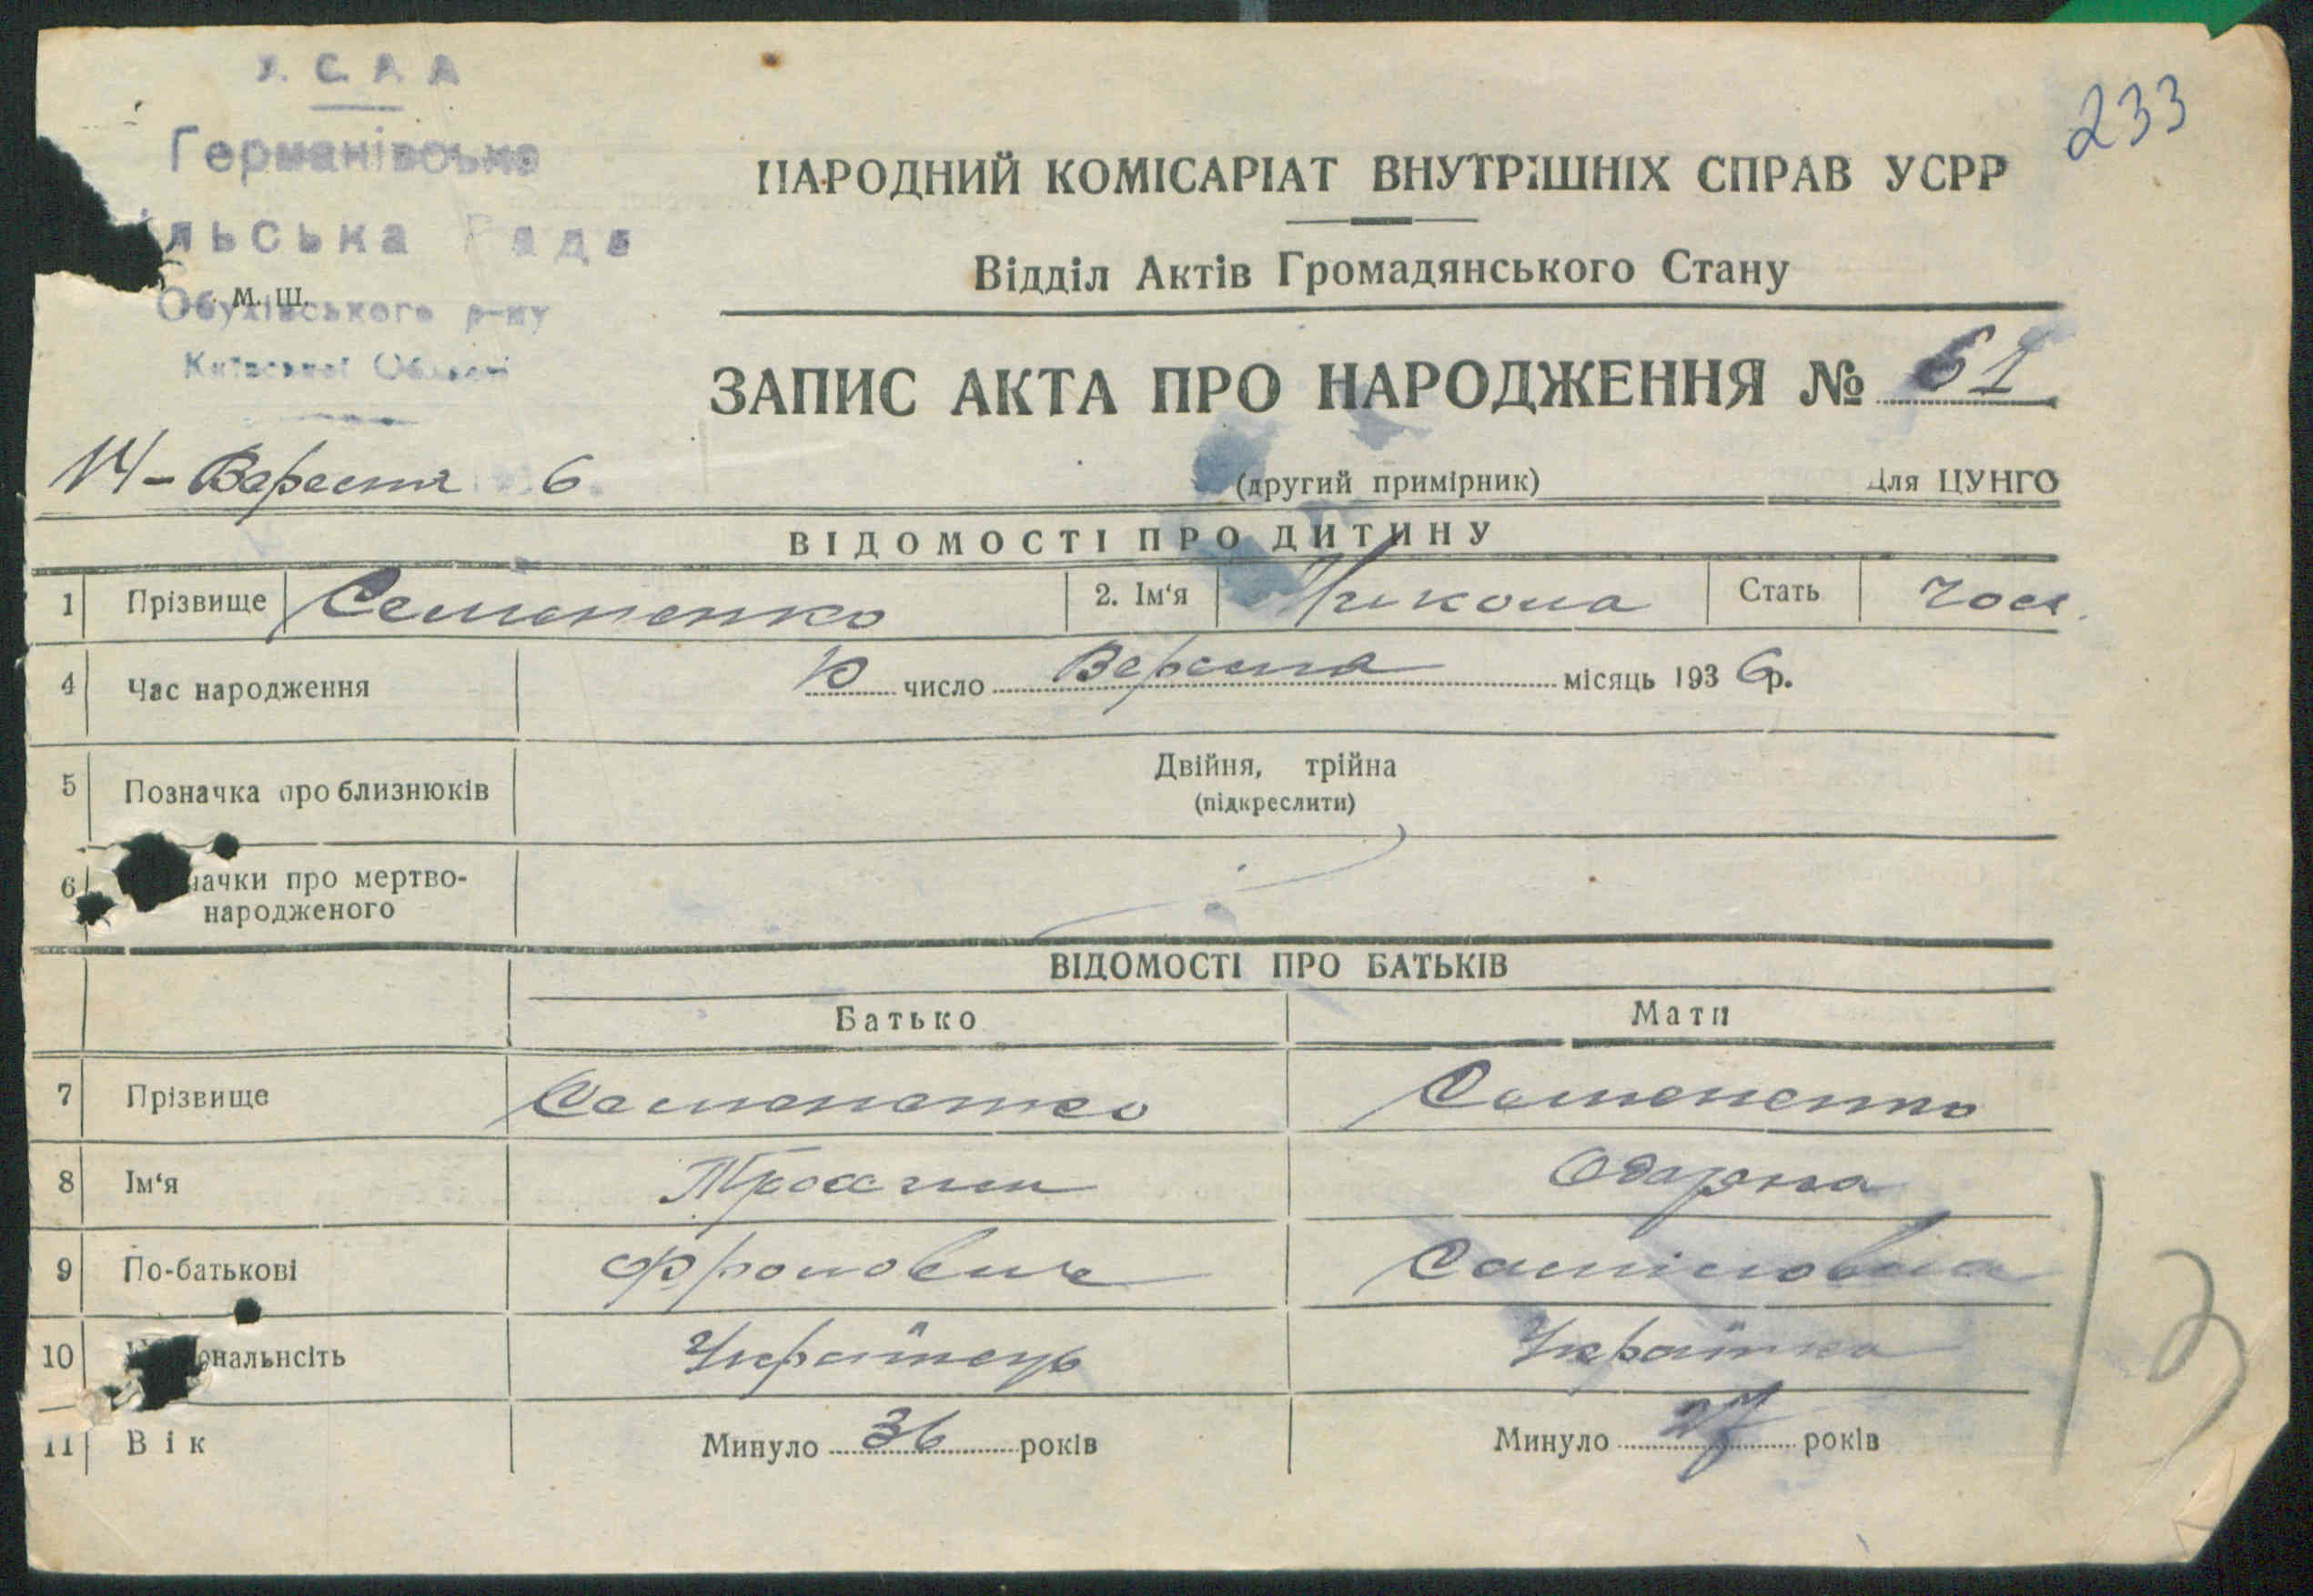 У. С. Р. Р.
233
Германівська
НАРОДНИЙ КОМІСАРІАТ ВНУТРІШНІХ СПРАВ УСРР
льська Рада
Відділ Актів Громадянського Стану
м. ш.
Обухівського р-ну
Київської Області
ЗАПИС АКТА ПРО НАРОДЖЕННЯ № 61
14 - Вересня 6
(другий примірник) Для ЦУНГО
ВІДОМОСТІ ПРО ДИТИНУ
1 Прізвище Семененко 2. Ім'я Микола Стать чол.
4 Час народження 10 число Вересня місяць 1936 р.
5 Позначка про близнюків Двійня, трійна
(підкреслити)
6 начки про мертво-
народженого
ВІДОМОСТІ ПРО БАТЬКІВ
Батько Мати
7 Прізвище Семененко Семененко
8 Ім'я Трохим Одарка
9 По-батькові
10 ональнсіть Українець Українка
11 Вік Минуло 36 років Минуло 27 років
13